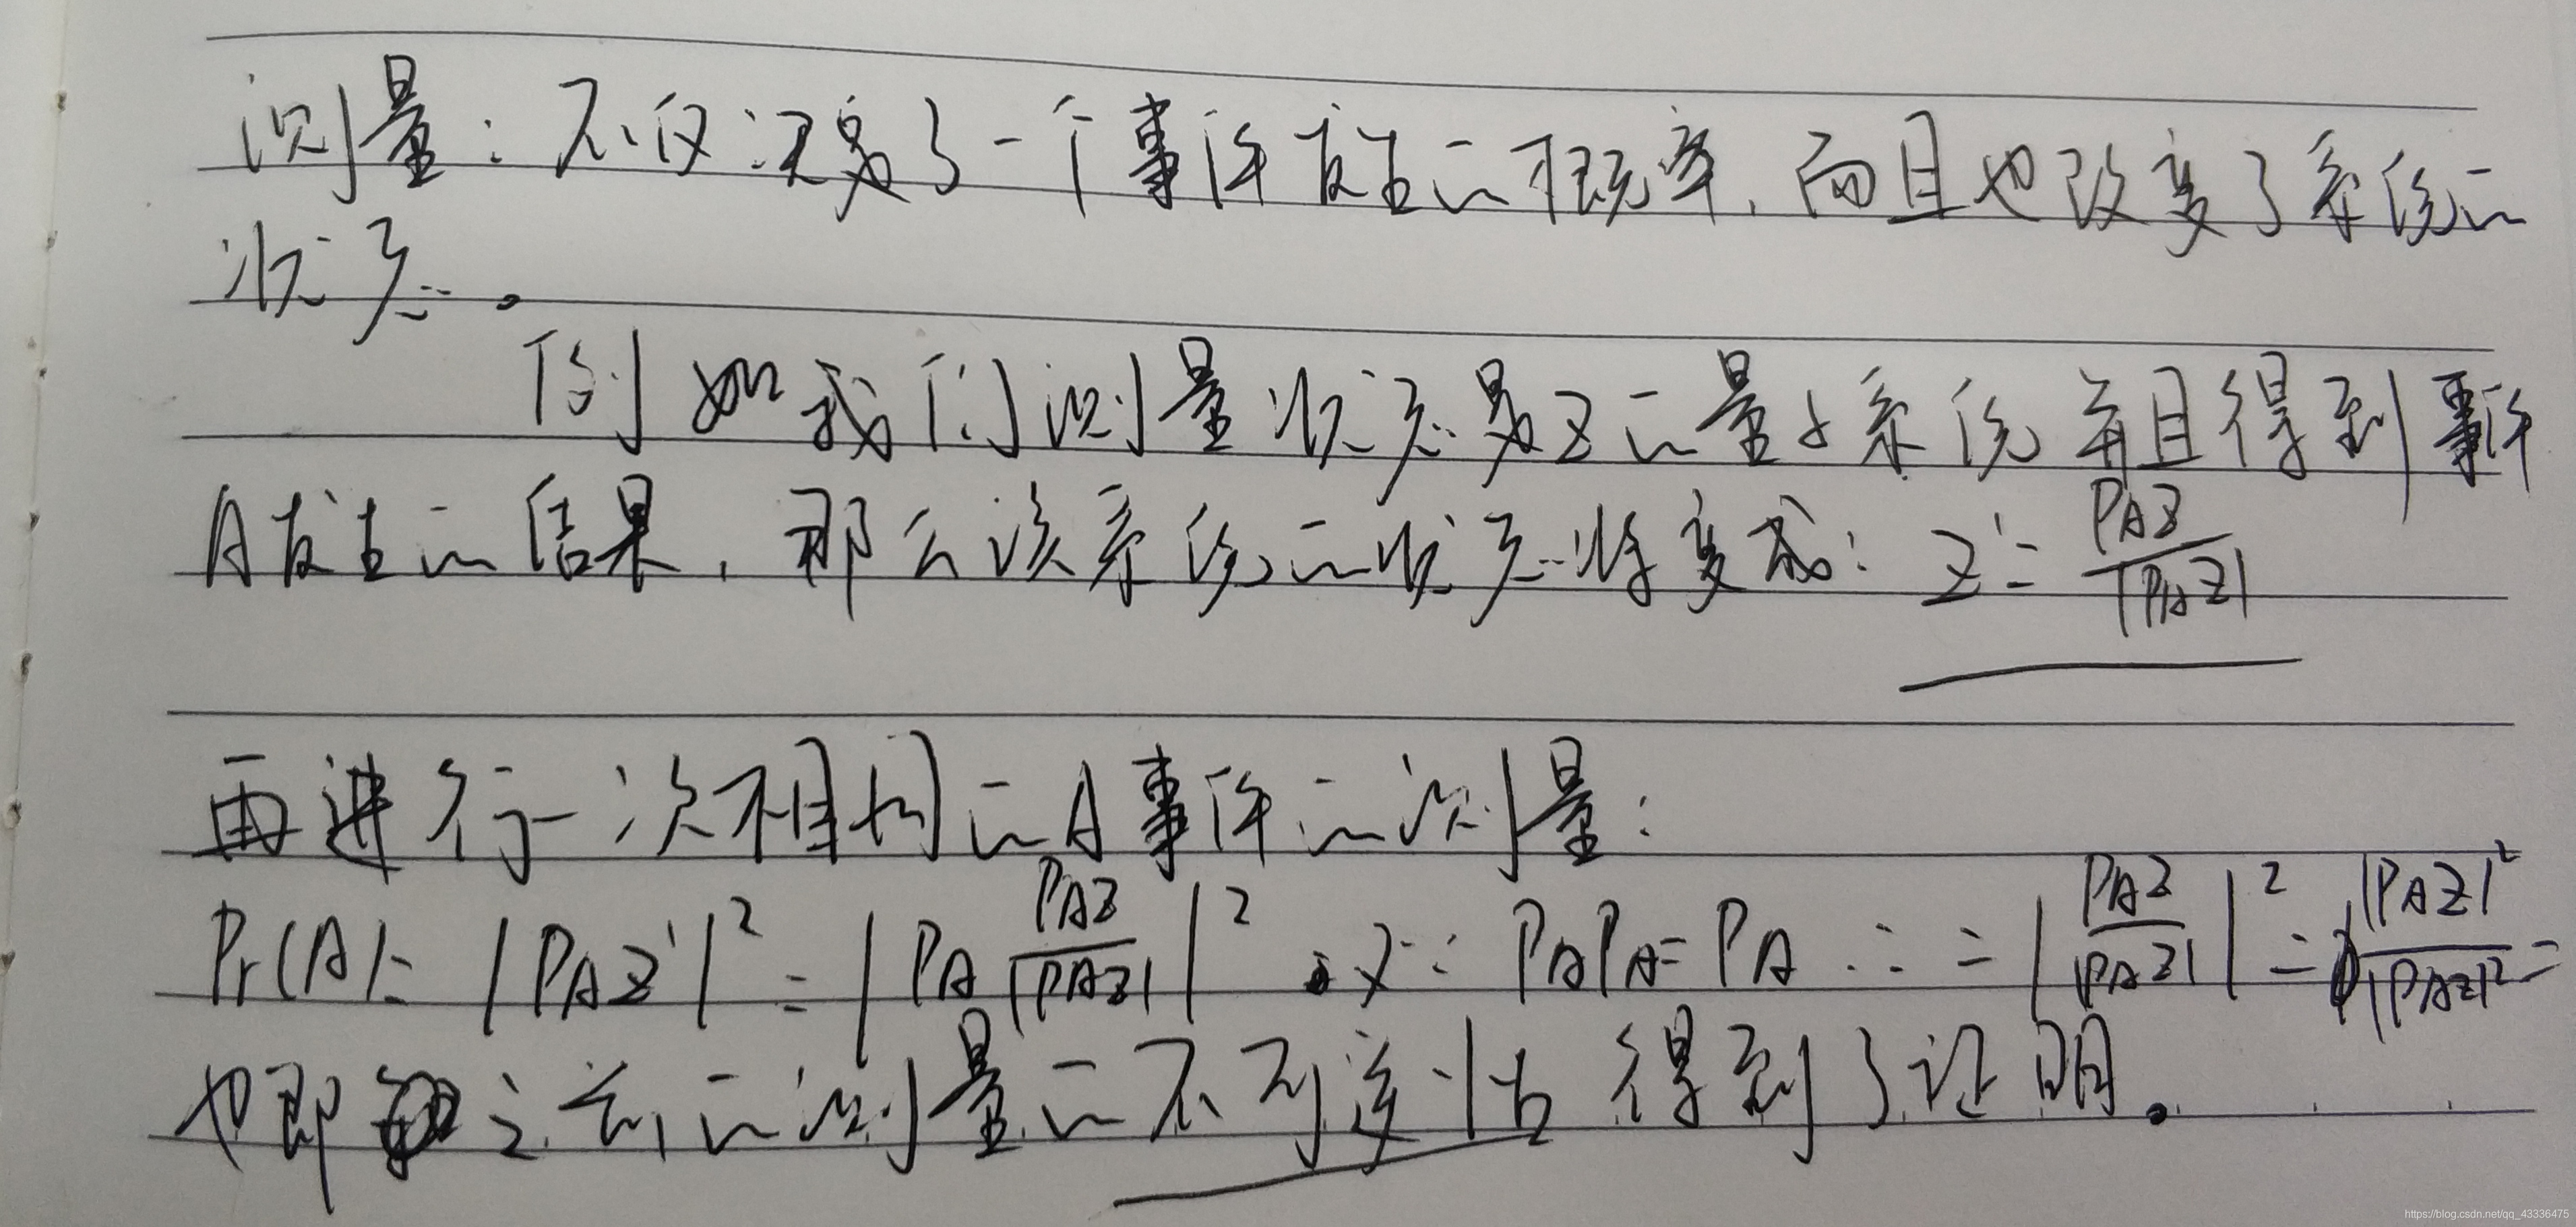 测量：不仅涉及了一个事件发生的概率，而且也改变了系统的
状态。
例如我们测量状态为z的量子系统并且得到事件
A发生的结果，那么该系统的状态将变成：z'=PAz/|PAz|
再进行一次相同的A事件的测量：
Pr(A)=|PAz'|²=|PA PAz/|PAz||² 又∵PAPA=PA ∴=|PAz/|PAz||²=|PAz|²/|PAz|²=
也即之前的测量的不可逆性得到了证明。
https://blog.csdn.net/qq_43336475